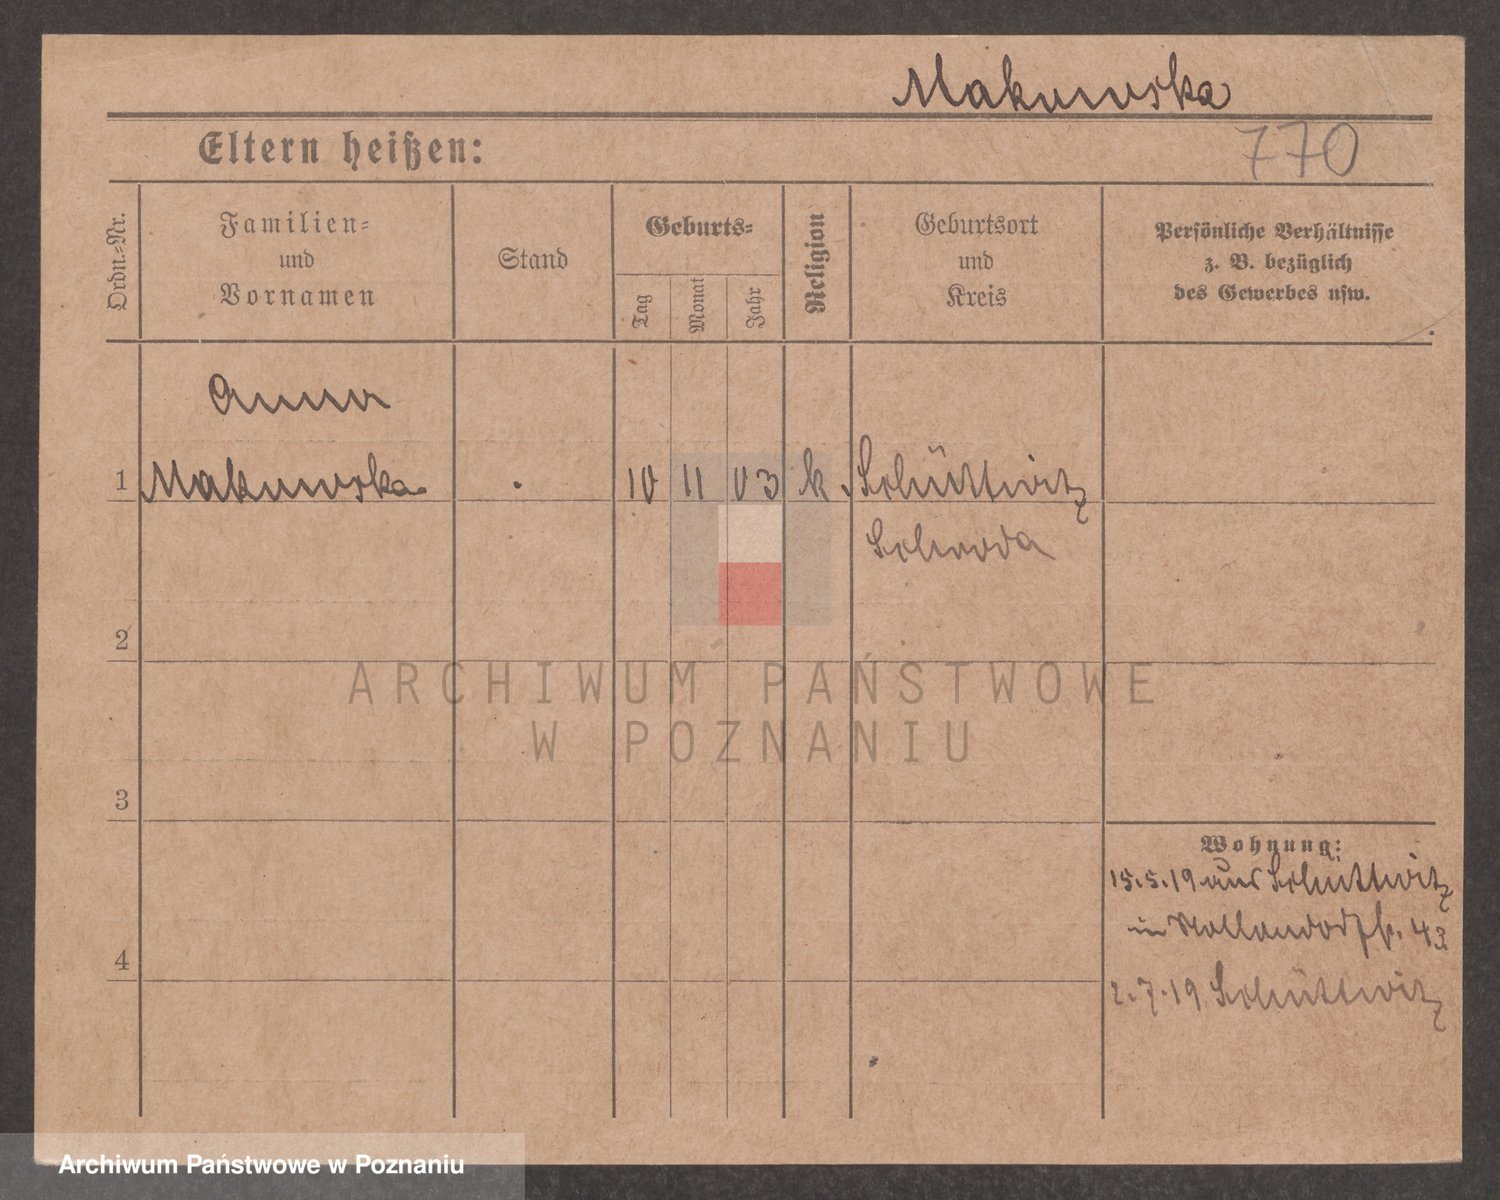 Makowska
Eltern heißen:
770
Ordn.-Nr.
Familien-
und
Vornamen
Stand
Geburts-
Tag
Monat
Jahr
Religion
Geburtsort
und
Kreis
Persönliche Verhältnisse
z. B. bezüglich
des Gewerbes usw.
Anna
1 Makowska . 10 11 03 k. Schüttwitz
Schroda
2
3
4
Wohnung:
15.5.19 aus Schüttwitz
in Nollendorfstr. 43
2.7.19 Schüttwitz
ARCHIWUM PAŃSTWOWE
W POZNANIU
Archiwum Państwowe w Poznaniu